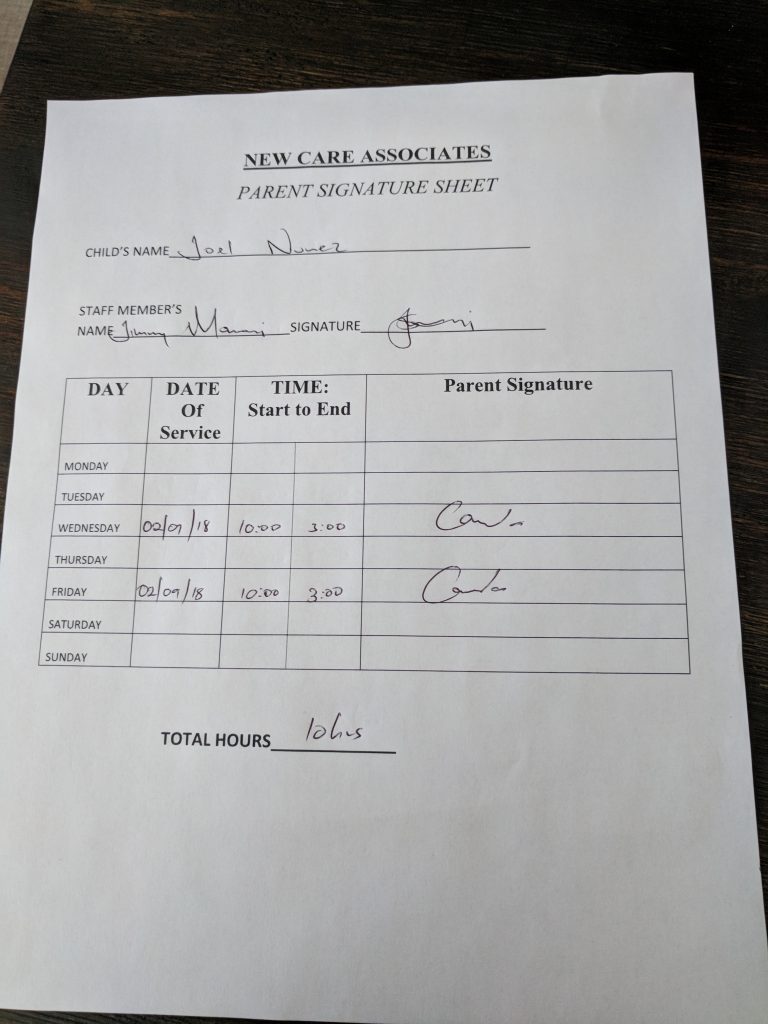 NEW CARE ASSOCIATES
PARENT SIGNATURE SHEET
CHILD'S NAME Joel Nunez
STAFF MEMBER'S
NAME Jimmy SIGNATURE
DAY DATE Of Service TIME: Start to End Parent Signature
MONDAY
TUESDAY
WEDNESDAY 02/07/18 10:00 3:00
THURSDAY
FRIDAY 02/09/18 10:00 3:00
SATURDAY
SUNDAY
TOTAL HOURS 10hrs